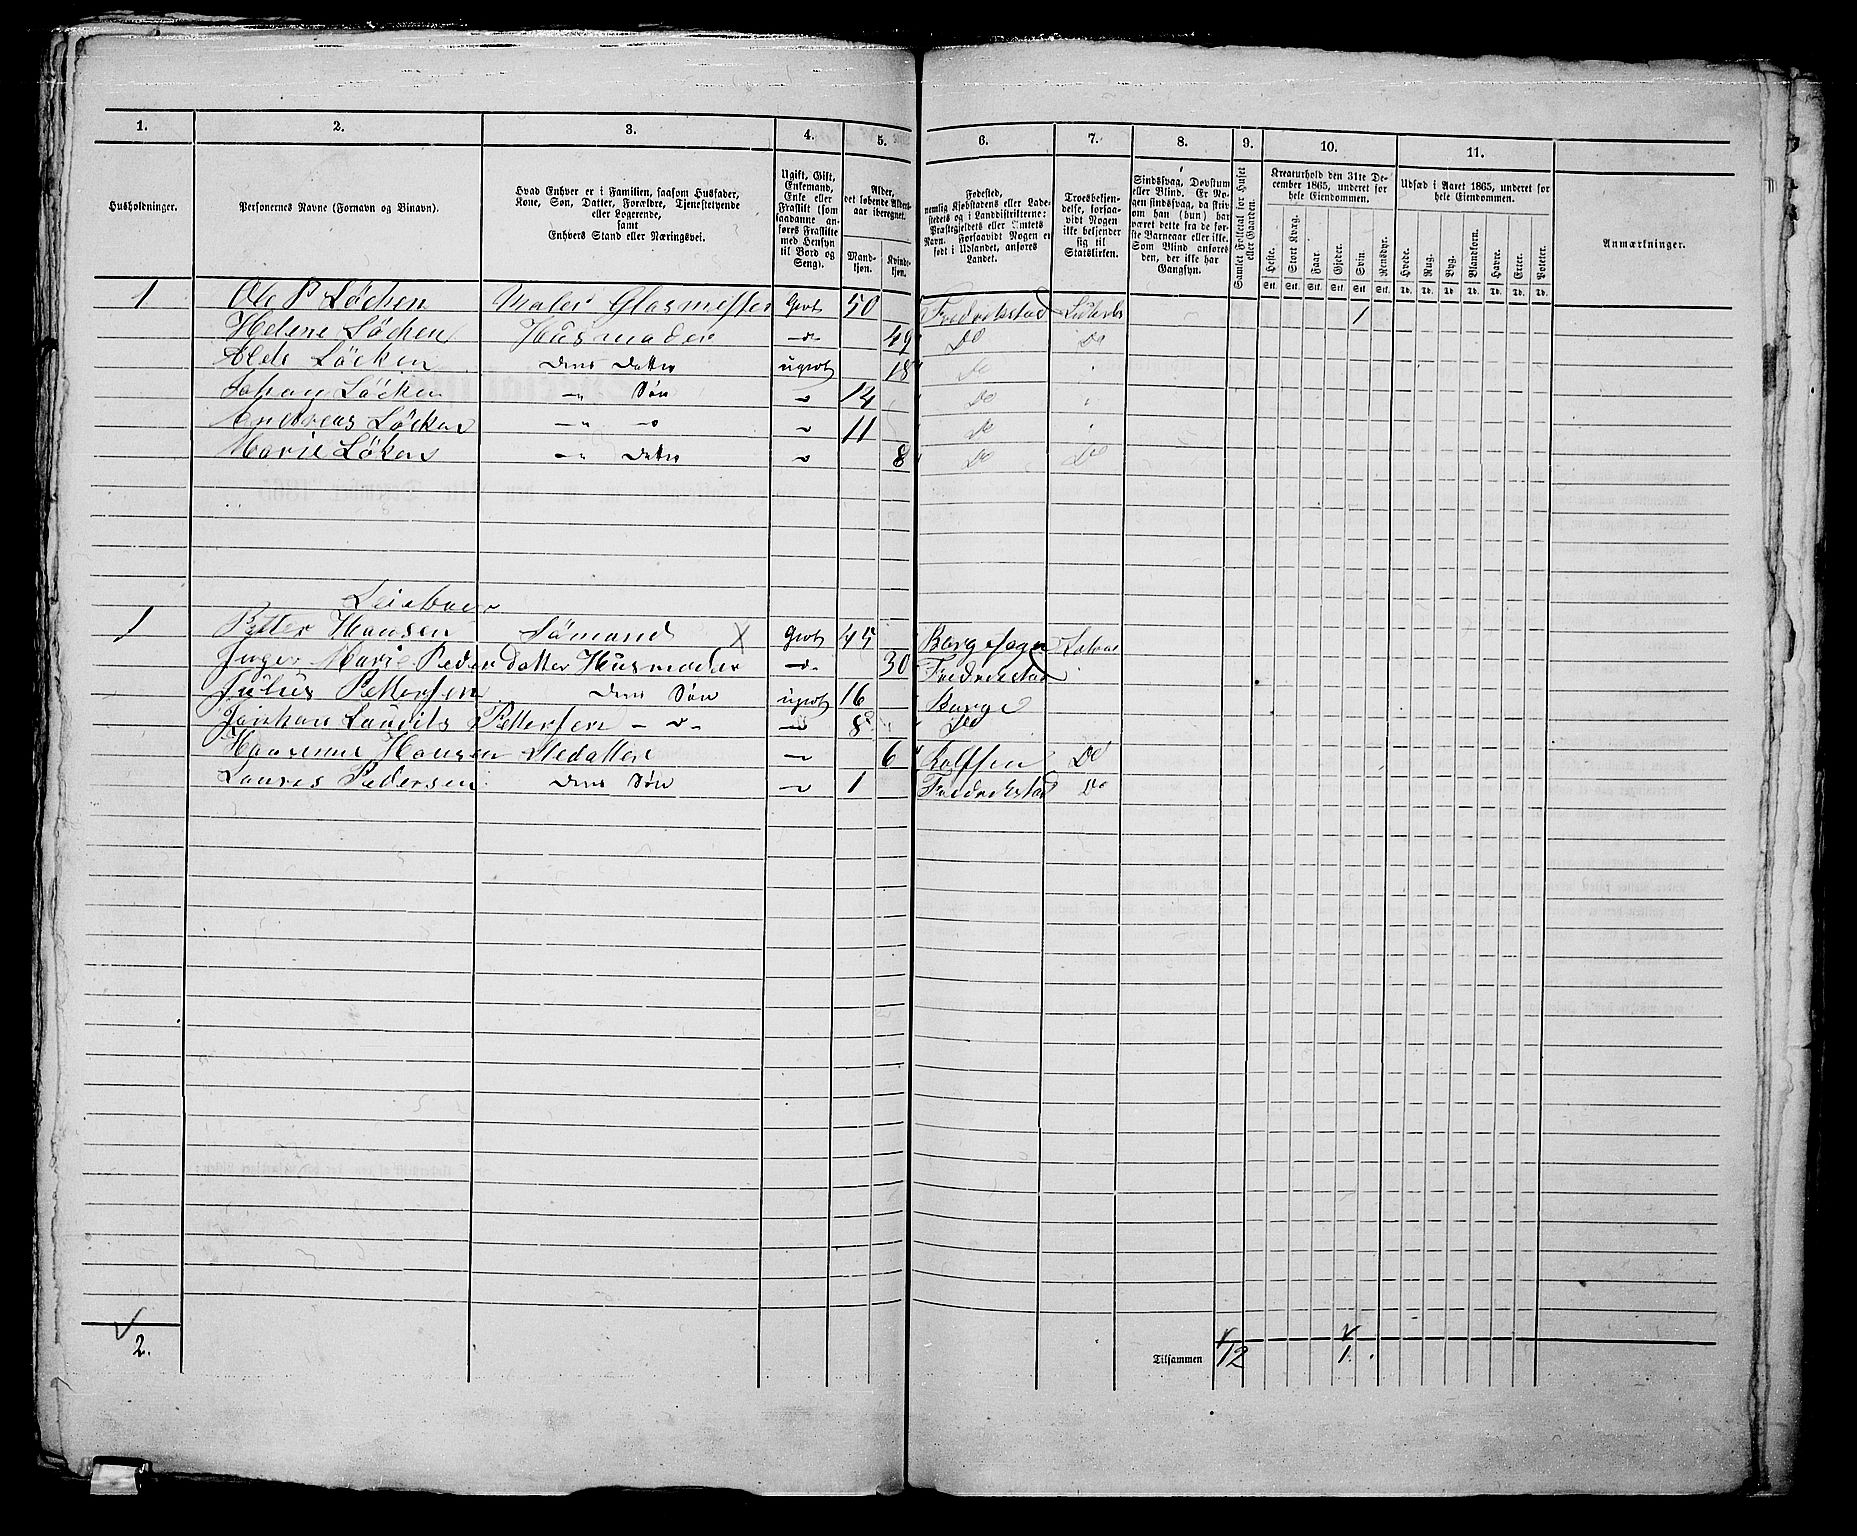 1. 2. 3. 4. 5. 6. 7. 8. 9. 10. 11.
Husholdninger.
Personernes Navne (Fornavn og Binavn).
Hvad Enhver er i Familien, saasom Husfader,
Kone, Søn, Datter, Forældre, Tjenestetyende
eller Logerende,
samt
Enhvers Stand eller Næringsvei.
Ugift, Gift,
Enkemand,
Enke eller
Fraskilt (som
saadanne anføres
Fraskilte
med Hensyn
til Bord og
Seng).
Alder,
det løbende Aldersaar
iberegnet.
Mandkjøn.
Kvindekjøn.
Fødested,
nemlig Kjøbstadens eller Ladestedets
og i Landdistrikterne:
Præstegjeldets eller Amtets
Navn. Forsaavidt Nogen er
født i Udlandet, anføres
Landet.
Troesbekjendelse,
forsaavidt
Nogen
ikke bekjender
sig til
Statskirken.
Sindssvag, Døvstum
eller Blind. Er Nogen
sindssvag, da skriv
om han (hun) har
været dette fra de første
Barneaar eller ikke.
Som Blind anføres
den, der ikke har
Gangsyn.
Samlet Folketal for Huset
eller Gaarden.
Kreaturhold den 31te December
1865, underet for
hele Eiendommen.
Heste. Stort Kvæg. Faar. Gjeder. Svin. Rensdyr.
Stk. Stk. Stk. Stk. Stk. Stk.
Udsæd i Aaret 1865, underet for
hele Eiendommen.
Hvede. Rug. Byg. Blandkorn. Havre. Erter. Poteter.
Td. Td. Td. Td. Td. Td. Td.
Anmærkninger.
1 Ole P Löcken Maler Glasmester givt 50 Fredrikstad 1
Helene Löcken Husmoder -"- 49 Do Do
Löcken Deres Datter ugivt 18 Do "
Johan Löcken -"- Sön " 14 Do "
Andreas Löcken -"- -"- " 11 Do "
Marie Löken -"- Datter " 8 Do Do
Leieboer
1 Petter Hansen Sömand X givt 45 Borge sogn
Inger Marie Pedersdatter Husmoder -"- 30 Fredrikstad "
Julius Pettersen Deres Sön ugivt 16 Borge
Laurits Pettersen -"- " 8 Do
Hansen Stedatter " 6 Do
Laures Pedersen Deres Sön " 1 Fredrikstad Do
2.
Tilsammen 12 1.